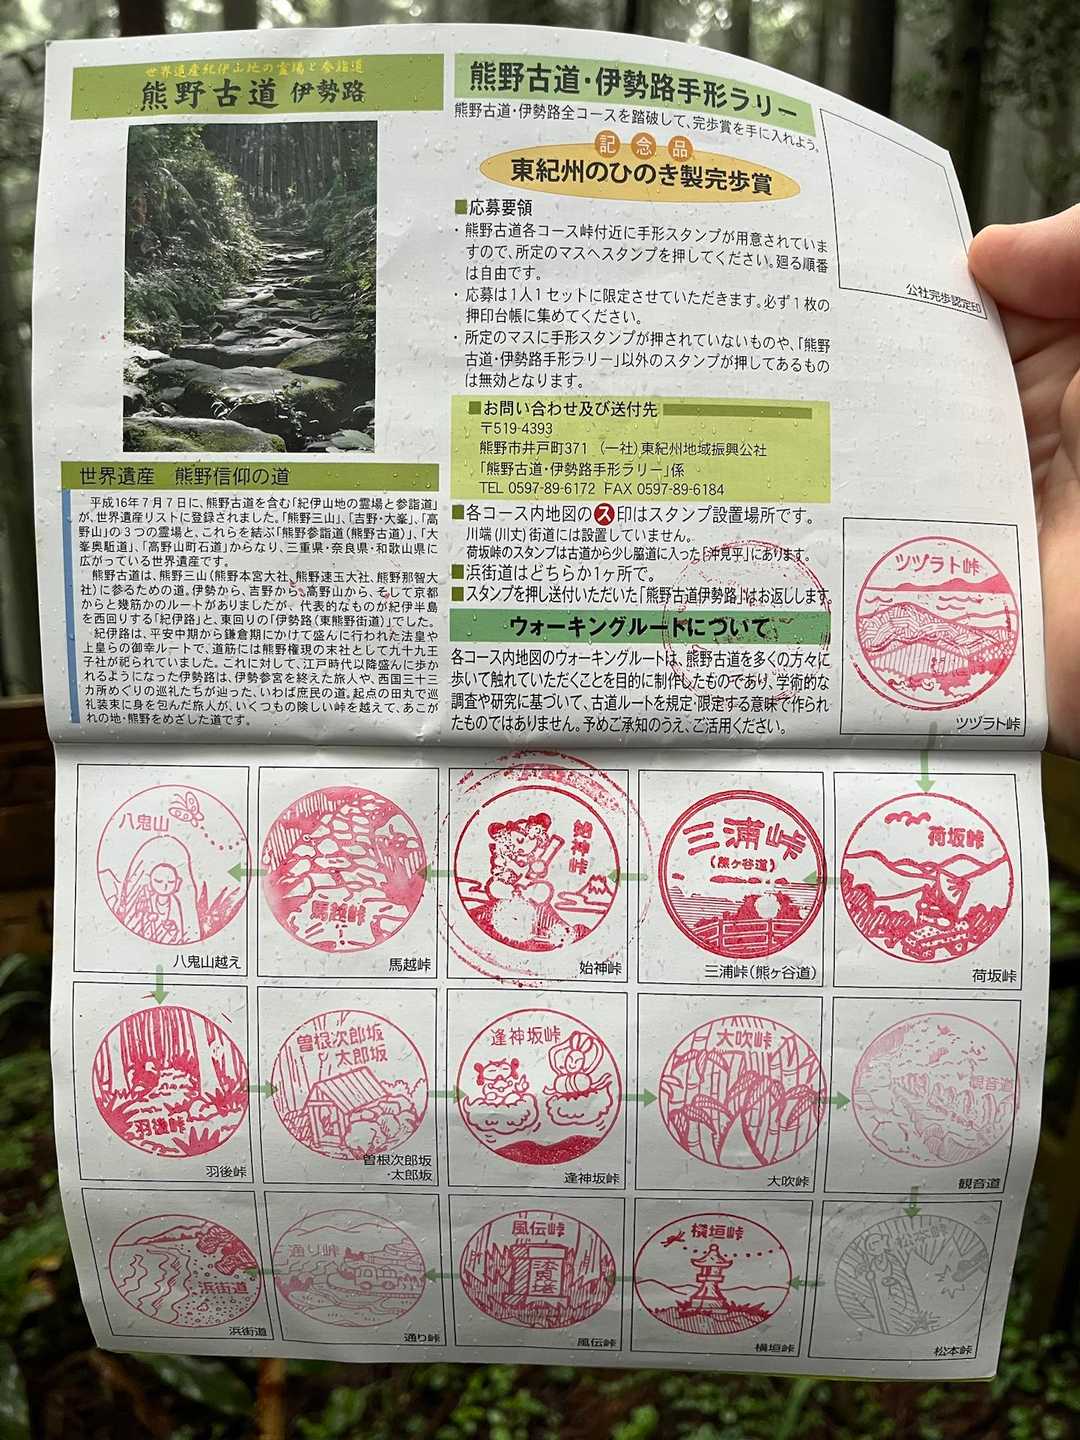 世界遺産紀伊山地の霊場と参詣道
熊野古道 伊勢路
世界遺産 熊野信仰の道
平成16年7月7日に、熊野古道を含む「紀伊山地の霊場と参詣道」
が、世界遺産リストに登録されました。「熊野三山」、「吉野・大峯」、「高
野山」の3つの霊場と、これらを結ぶ「熊野参詣道(熊野古道)」、「大
峯奥駈道」、「高野山町石道」からなり、三重県・奈良県・和歌山県に
広がっている世界遺産です。
熊野古道は、熊野三山(熊野本宮大社、熊野速玉大社、熊野那智大
社)に参るための道。伊勢から、吉野から、高野山から、そして京都
からと幾筋かのルートがありましたが、代表的なものが紀伊半島
を西回りする「紀伊路」と、東回りの「伊勢路(東熊野街道)」でした。
紀伊路は、平安中期から鎌倉期にかけて盛んに行われた法皇や
上皇らの御幸ルートで、道筋には熊野権現の末社として九十九王
子社が祀られていました。これに対して、江戸時代以降盛んに歩か
れるようになった伊勢路は、伊勢参宮を終えた旅人や、西国三十三
カ所めぐりの巡礼たちが辿った、いわば庶民の道。起点の田丸で巡
礼装束に身を包んだ旅人が、いくつもの険しい峠を越えて、あこが
れの地・熊野をめざした道です。
熊野古道・伊勢路手形ラリー
熊野古道・伊勢路全コースを踏破して、完歩賞を手に入れよう。
記念品
東紀州のひのき製完歩賞
■応募要領
・熊野古道各コース峠付近に手形スタンプが用意されていま
すので、所定のマスへスタンプを押してください。廻る順番
は自由です。
・応募は1人1セットに限定させていただきます。必ず1枚の
押印台帳に集めてください。
・所定のマスに手形スタンプが押されていないものや、「熊野
古道・伊勢路手形ラリー」以外のスタンプが押してあるもの
は無効となります。
■お問い合わせ及び送付先
〒519-4393
熊野市井戸町371 (一社)東紀州地域振興公社
「熊野古道・伊勢路手形ラリー」係
TEL 0597-89-6172 FAX 0597-89-6184
■各コース内地図のス印はスタンプ設置場所です。
川端(川丈)街道には設置していません。
荷坂峠のスタンプは古道から少し脇道に入った「沖見平」にあります。
■浜街道はどちらか1ヶ所で。
■スタンプを押し送付いただいた「熊野古道伊勢路」はお返しします。
ウォーキングルートについて
各コース内地図のウォーキングルートは、熊野古道を多くの方々に
歩いて触れていただくことを目的に制作したものであり、学術的な
調査や研究に基づいて、古道ルートを規定・限定する意味で作られ
たものではありません。予めご承知のうえ、ご活用ください。
公社完歩認定印
ツヅラト峠
ツヅラト峠
八鬼山
八鬼山越え
馬越峠
馬越峠
始神峠
始神峠
三浦峠
(熊ヶ谷道)
三浦峠(熊ヶ谷道)
荷坂峠
荷坂峠
羽後峠
羽後峠
曽根次郎坂
太郎坂
曽根次郎坂
・太郎坂
逢神坂峠
逢神坂峠
大吹峠
大吹峠
観音道
観音道
浜街道
浜街道
通り峠
通り峠
風伝峠
風伝峠
横垣峠
横垣峠
松本峠
松本峠